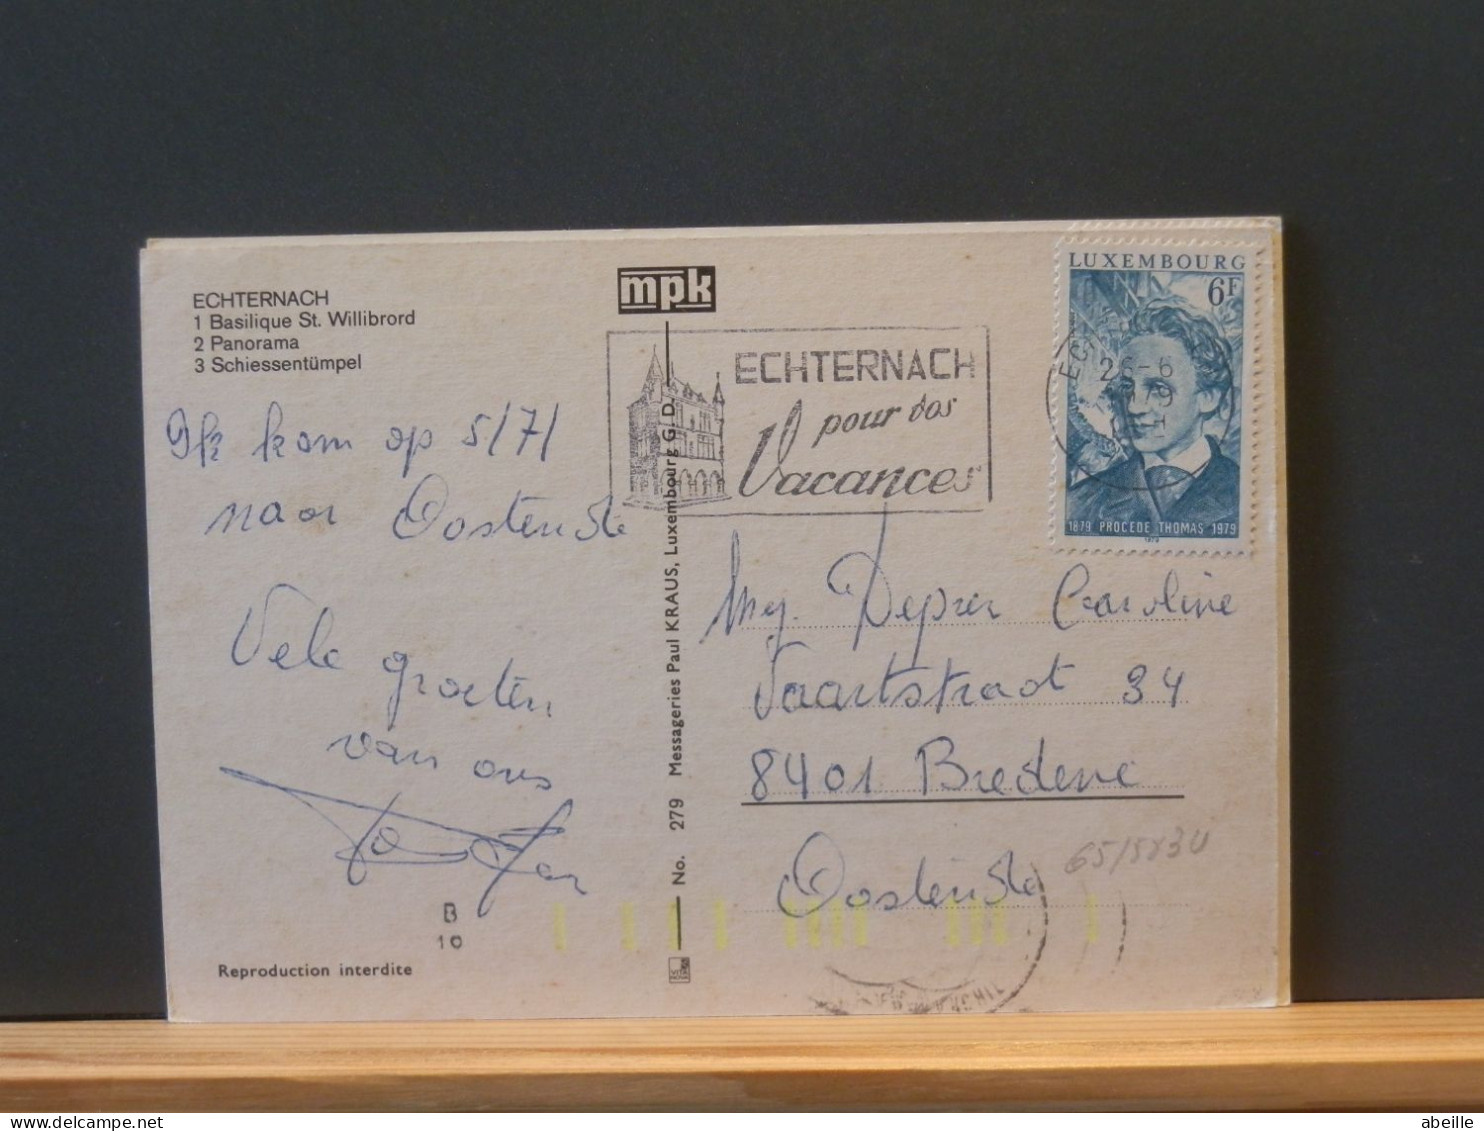 ECHTERNACH
1 Basilique St. Willibrord
2 Panorama
3 Schiessentümpel
mpk
ECHTERNACH
pour vos
Vacances
LUXEMBOURG
6F
26-6
1879 PROCEDE THOMAS 1979
1979
Ik kom op 5/7/
naar Oostende
Vele groeten
van ons
No. 279 Messageries Paul KRAUS, Luxembourg G.D.
Mej. Deprez Caroline
Vaartstraat 34
8401 Bredene
Oostende
B
10
Reproduction interdite
delcampe.net
abeille